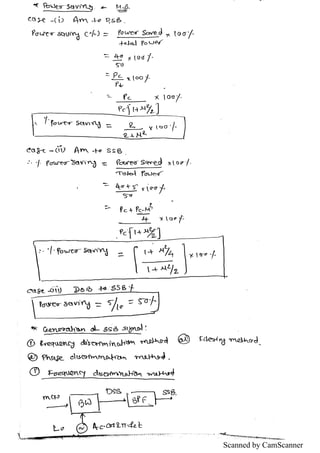 * Power saving :- M.B.
case -(i) Am to DSB.
Power saving (%) = Power Saved / total Power × 100%
= 40/50 × 100%.
= Pc/Pt × 100%.
= Pc / Pc[1+M²/2] × 100%.
∴ % Power Saving = 2 / 2+M² × 100%.
case -(ii) Am to SSB
∴ % Power Saving = Power Saved / Total Power × 100%.
= 40+5 / 50 × 100%.
= Pc + Pc.M²/4 / Pc[1+M²/2] × 100%.
∴ % Power saving = [1+M²/4 / 1+M²/2] × 100%.
case (iii) DSB to SSB %
Power saving = 5/10 = 50%
* Generation of SSB signal:
① Frequency discrimination method (or) Filtering method.
② Phase discrimination method.
① Frequency discrimination method
m(t) BM DSB BPF SSB
Lo Ac cos2πfct
Scanned by CamScanner